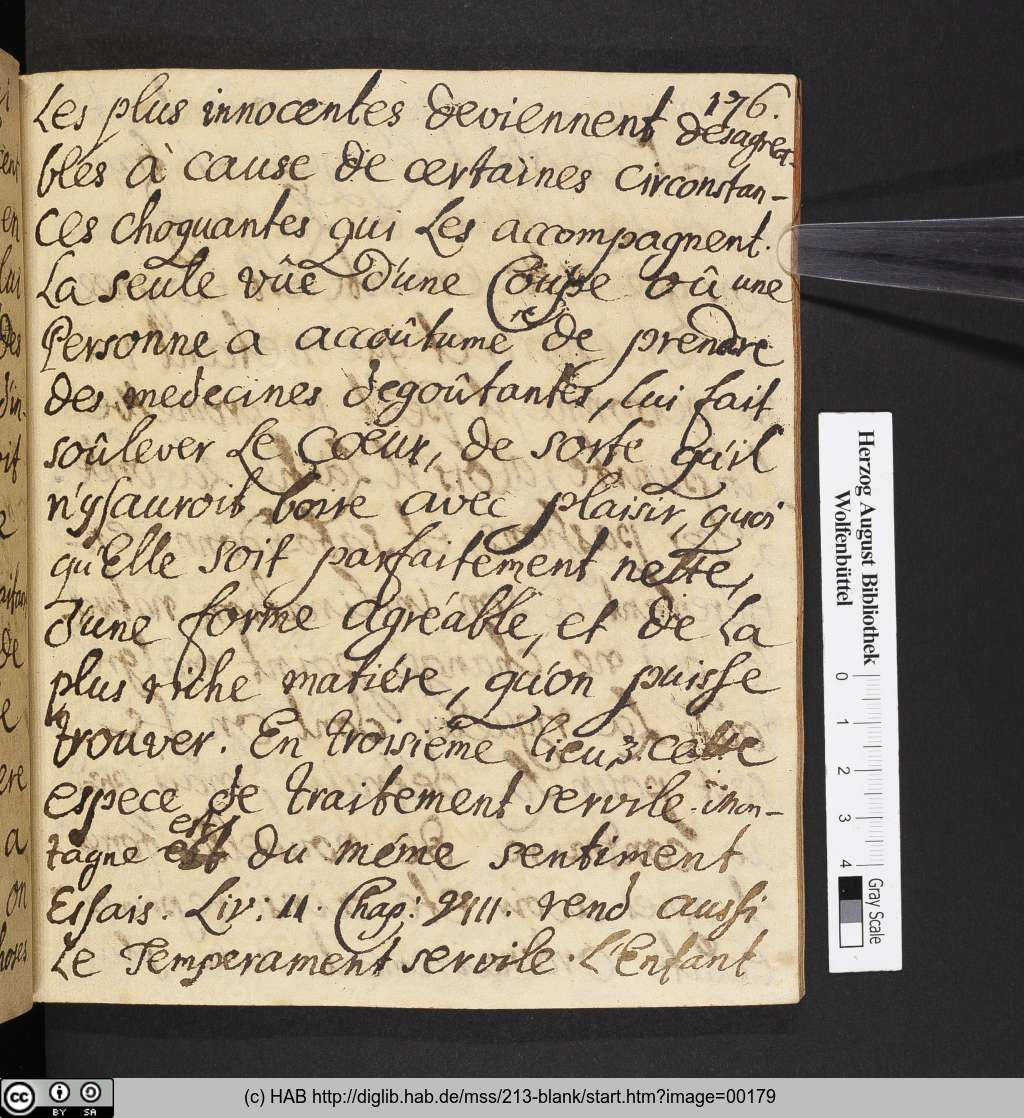 176.
Les plus innocentes deviennent desagrea-
bles à cause de certaines circonstan-
ces choquantes qui Les accompagnent.
La seule vûe d'une Coupe où une
Personne a accoûtumé de prendre
des medecines degoûtantes, lui fait
soûlever Le Cœur, de sorte qu'il
n'y sauroit boire avec plaisir, quoi
qu'Elle soit parfaitement nette,
d'une forme agréable, et de La
plus riche matiére, qu'on puisse
trouver. En troisiéme lieu, 3. cette
espece de traitement servile. Mon-
tagne est du méme sentiment
Essais. Liv: II. Chap: VIII. rend aussi
Le Temperament servile. L'Enfant
Herzog August Bibliothek
Wolfenbüttel
0 1 2 3 4
Gray Scale
cc BY SA
(c) HAB http://diglib.hab.de/mss/213-blank/start.htm?image=00179